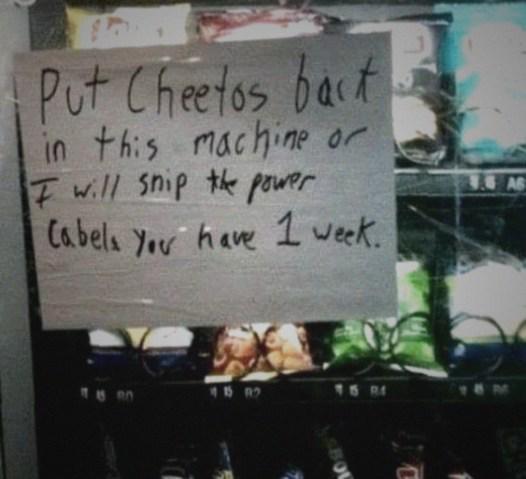 Put Cheetos back
in this machine or
I will snip the power
Cabel. You have 1 week.
B0
B2
B4